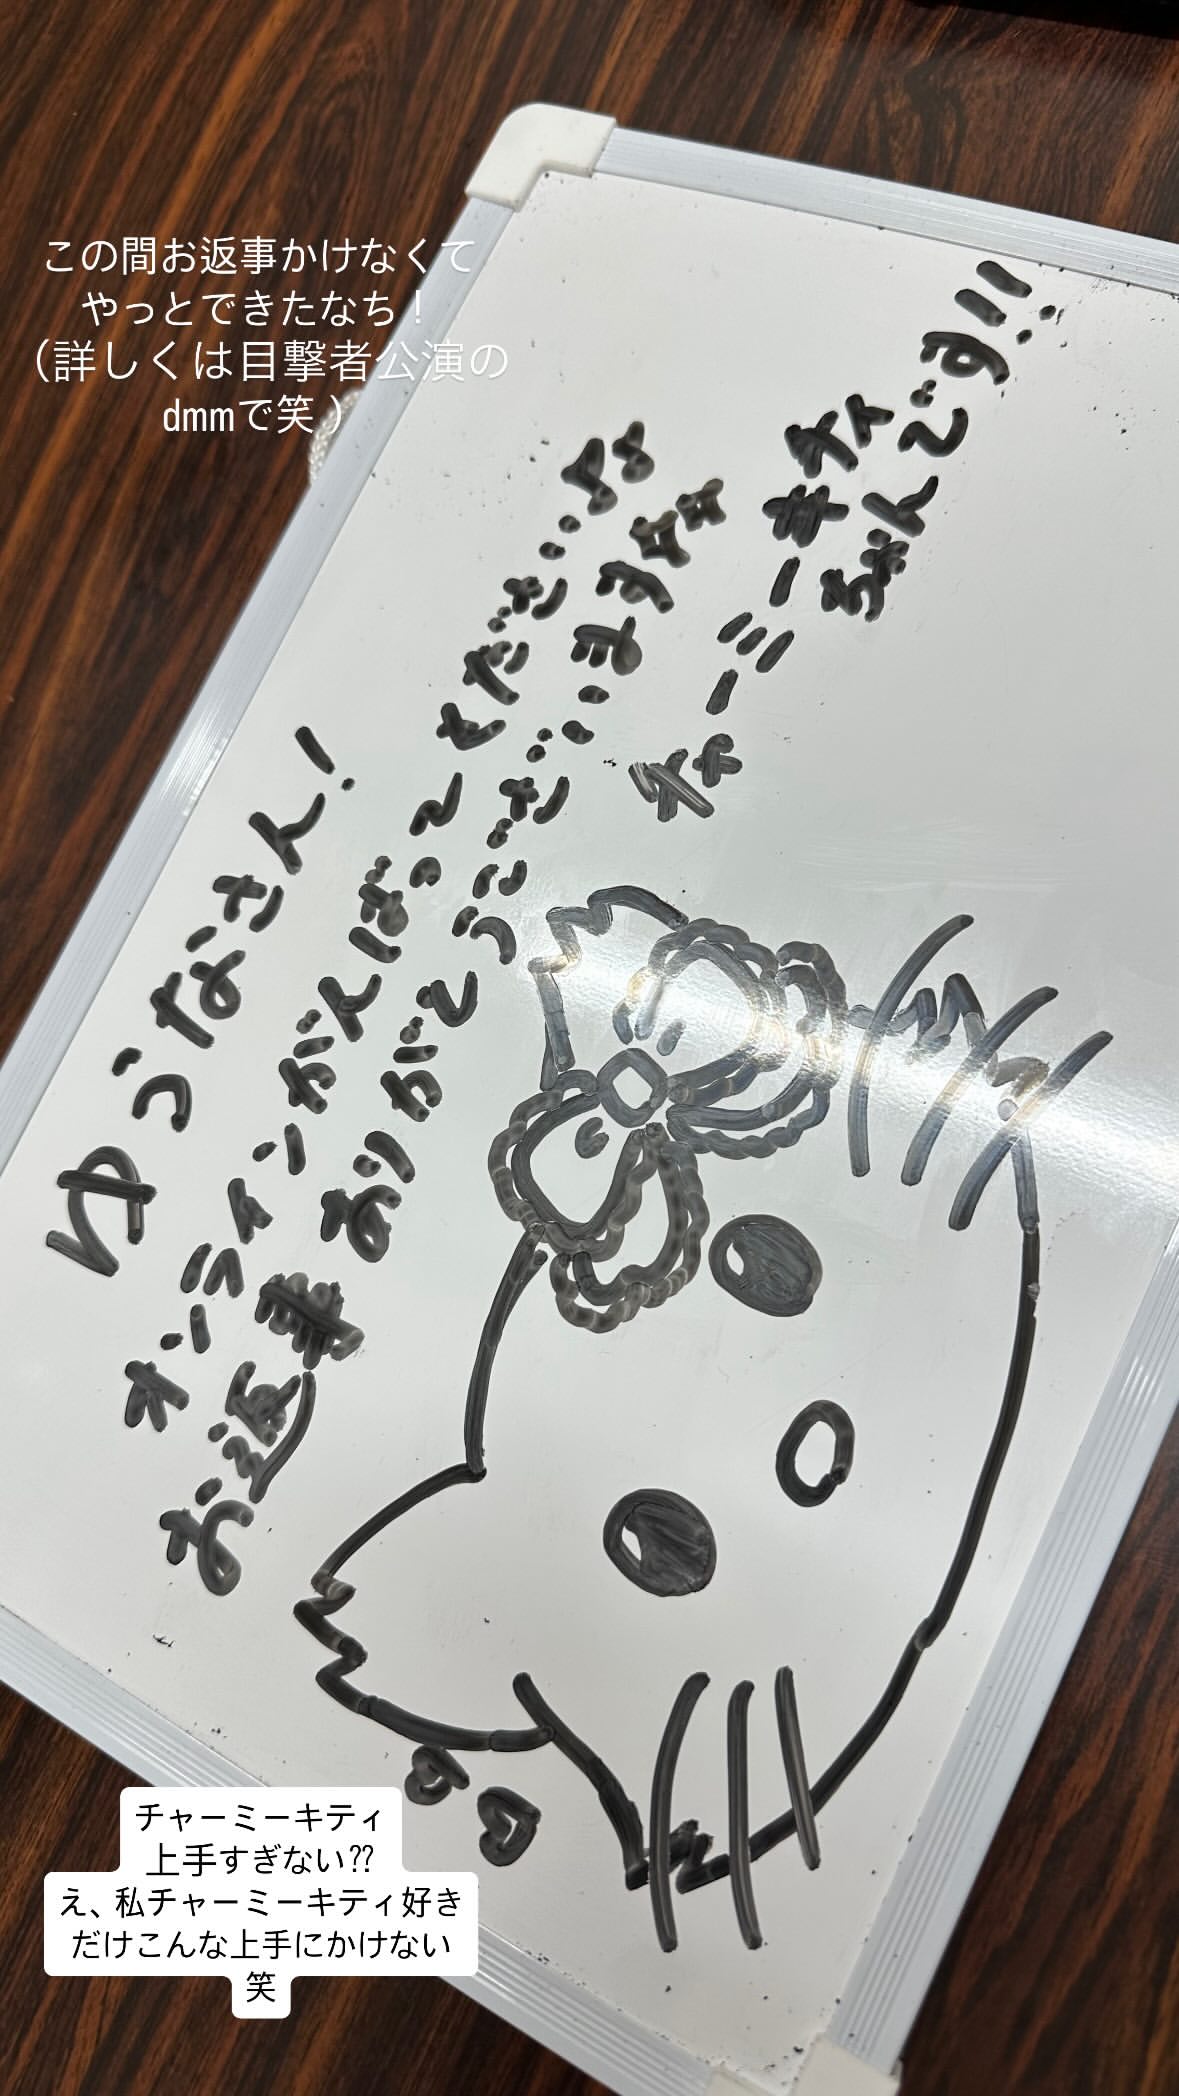 この間お返事かけなくて
やっとできたなち！
（詳しくは目撃者公演の
dmmで笑）
ゆうなさん！
オンラインがんばってください
お返事ありがとうございます
チャーミーキティ
ちゃんです!!
チャーミーキティ
上手すぎない⁇
え、私チャーミーキティ好き
だけこんな上手にかけない
笑